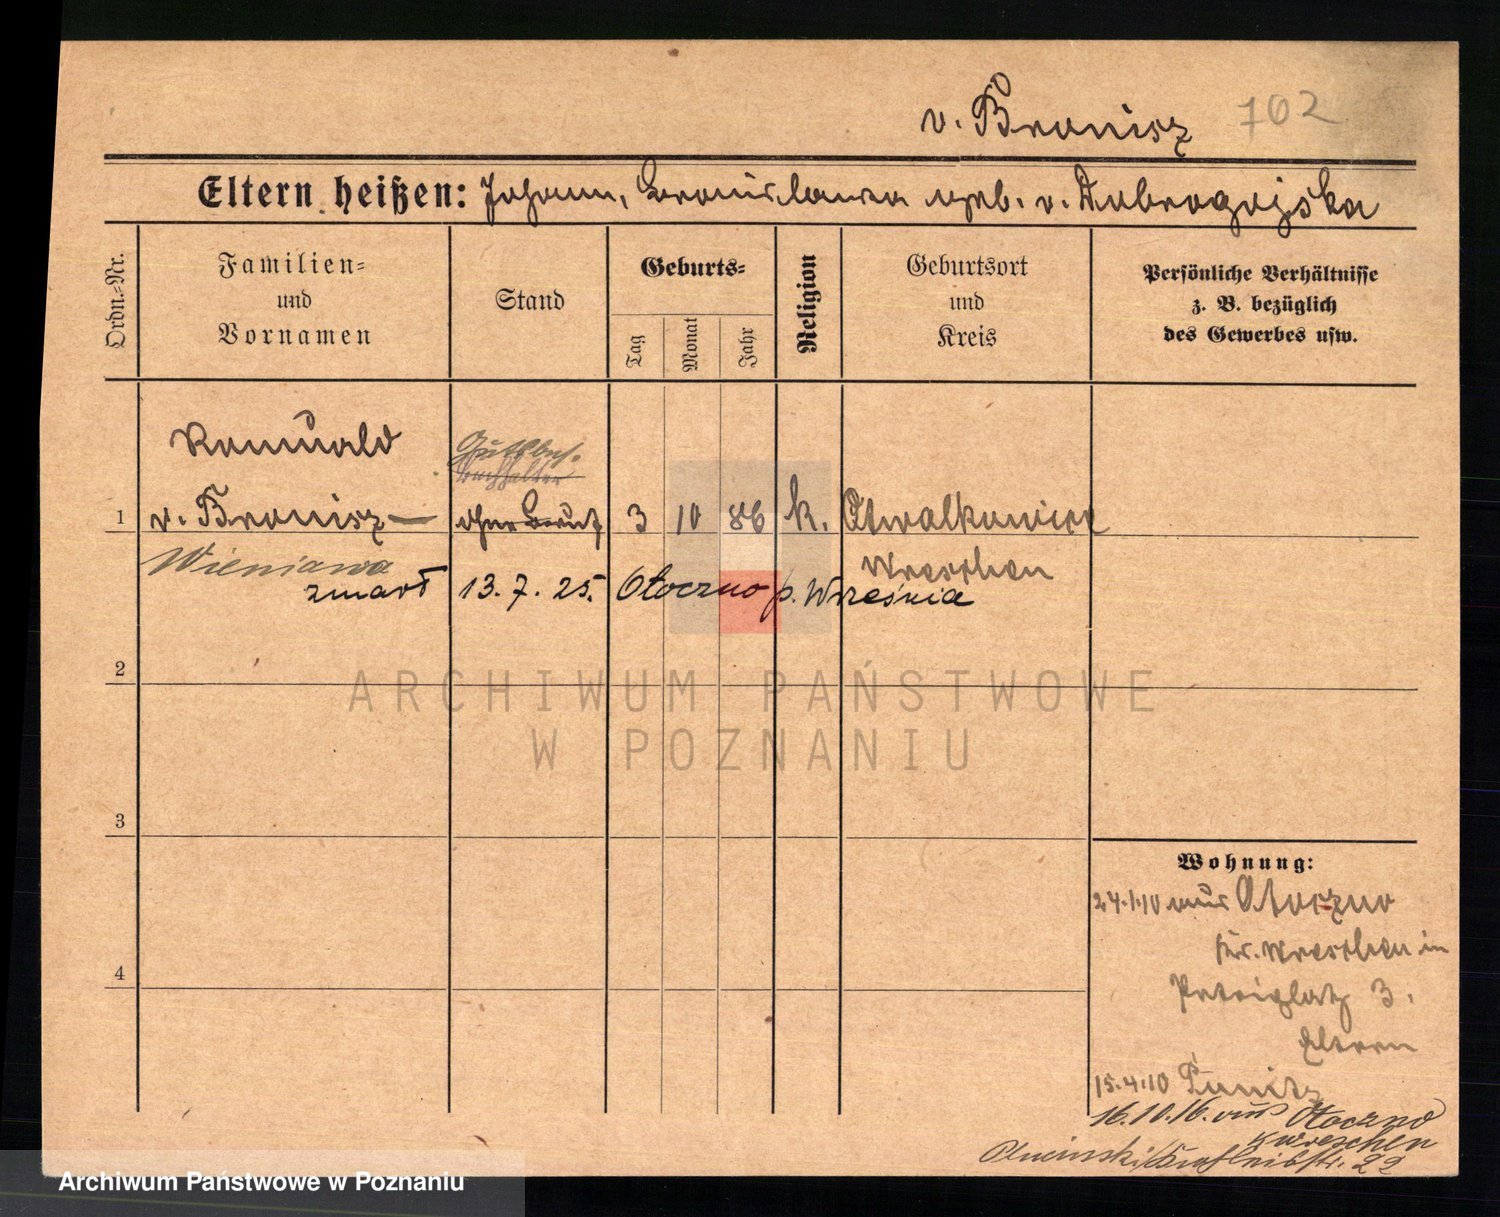 v. Bronisz 702
Eltern heißen: Johann, Bronislawa geb. v. Dobrogojska
Ordn.-Nr.
Familien-
und
Vornamen
Stand
Geburts-
Tag
Monat
Jahr
Religion
Geburtsort
und
Kreis
Persönliche Verhältnisse
z. B. bezüglich
des Gewerbes usw.
Romuald
Gutsbes.
Buchhalter
1 v. Bronisz ohne Beruf 3 10 86 k. Chwalkowice
Wieniawa Wreschen
zmarł 13.7.25. Otoczno p. Września
2
3
4
ARCHIWUM PAŃSTWOWE
W POZNANIU
Wohnung:
24.1.10 aus Otoczno
Kr. Wreschen in
Petriplatz 3.
Eltern
15.4.10 Punitz
16.10.16. aus Otoczno
K Wreschen
22
Archiwum Państwowe w Poznaniu